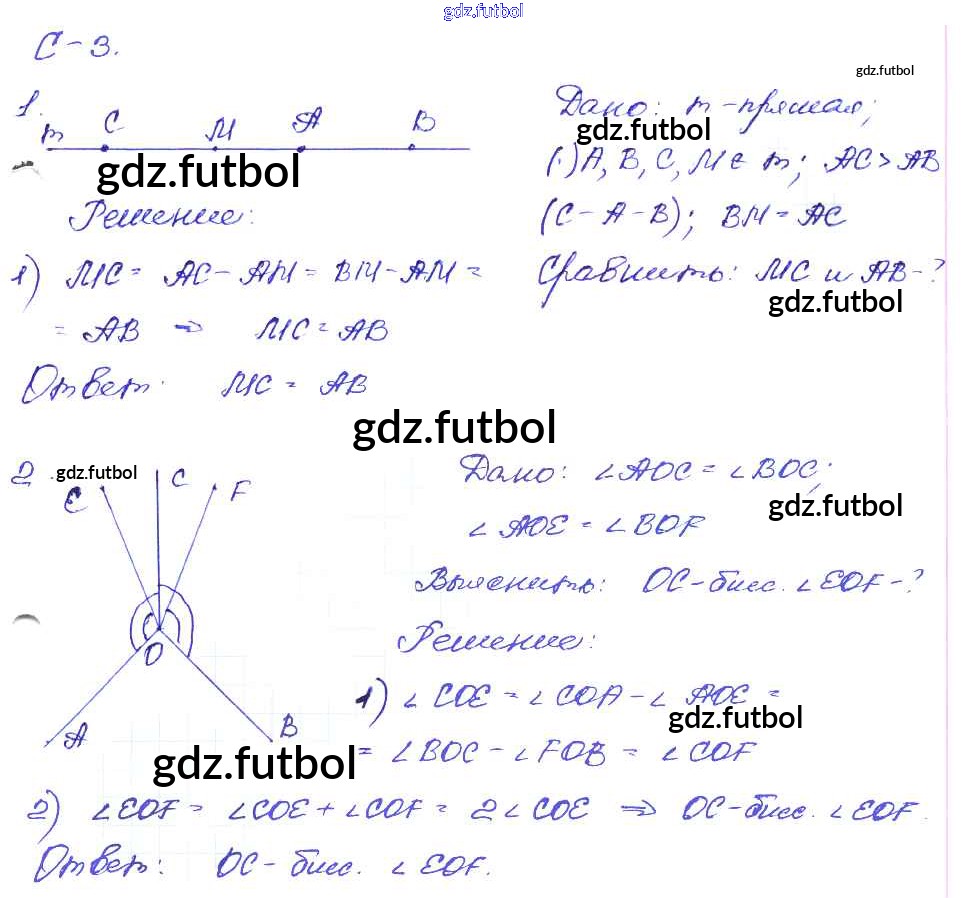 gdz.futbol
С-3.
gdz.futbol
1.
m C M A B
gdz.futbol
Дано: m - прямая;
gdz.futbol
(·) A, B, C, M ∈ m; AC > AB
(C - A - B); BM = AC
Сравнить: MC и AB - ?
gdz.futbol
Решение:
1) MC = AC - AM = BM - AM =
= AB ⇒ MC = AB
Ответ: MC = AB
gdz.futbol
2
gdz.futbol
E C F
O
A B
gdz.futbol
Дано: ∠AOC = ∠BOC;
gdz.futbol
∠AOE = ∠BOF
Выяснить: OC - бисс. ∠EOF - ?
Решение:
1) ∠COE = ∠COA - ∠AOE =
gdz.futbol
= ∠BOC - ∠FOB = ∠COF
2) ∠EOF = ∠COE + ∠COF = 2∠COE ⇒ OC - бисс. ∠EOF.
Ответ: OC - бисс. ∠EOF.